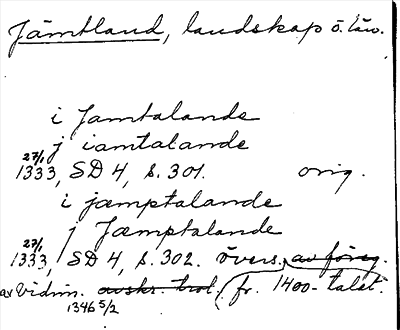 Jämtland, landskap o. län.
i Jamtalande
j iamtalande
27/1 1333, SD 4, s. 301. orig.
i jæmptalande
j Jæmptalande
27/1 1333, SD 4, s. 302. övers. av föreg.
av vidim. avskr. trol. fr. 1400-talet.
1346 5/2